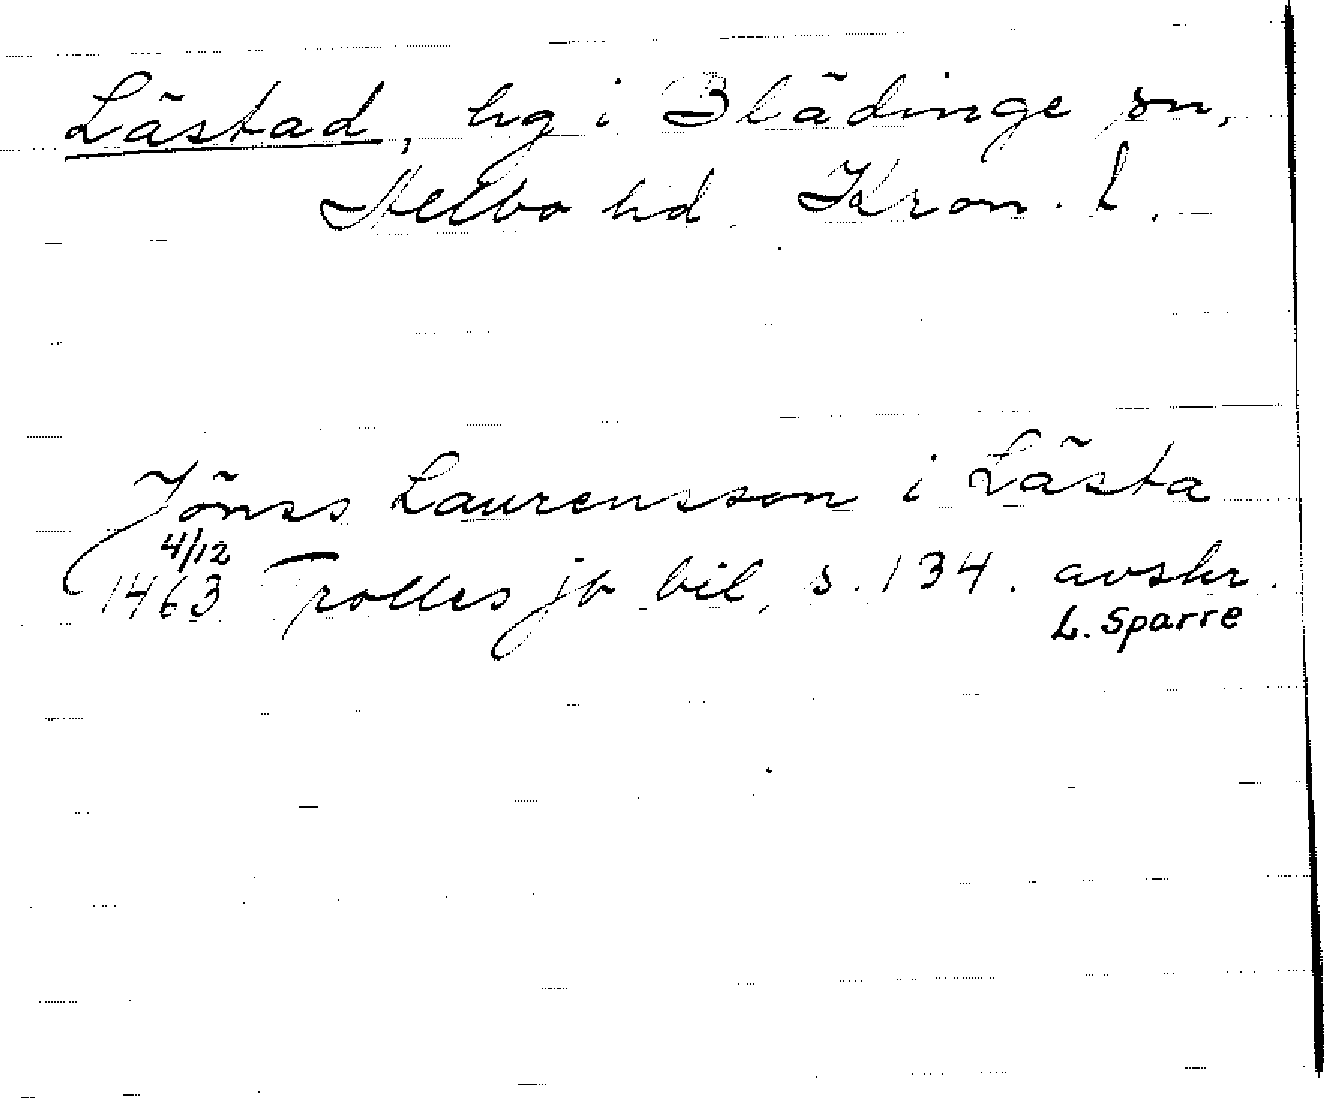 Låstad, hg i Blädinge sn,
Allbo hd. Kron. l.
Jönss Laurensson i Låsta
4/12
1463 Trolles jb bil, s. 134. avskr.
L. Sparre